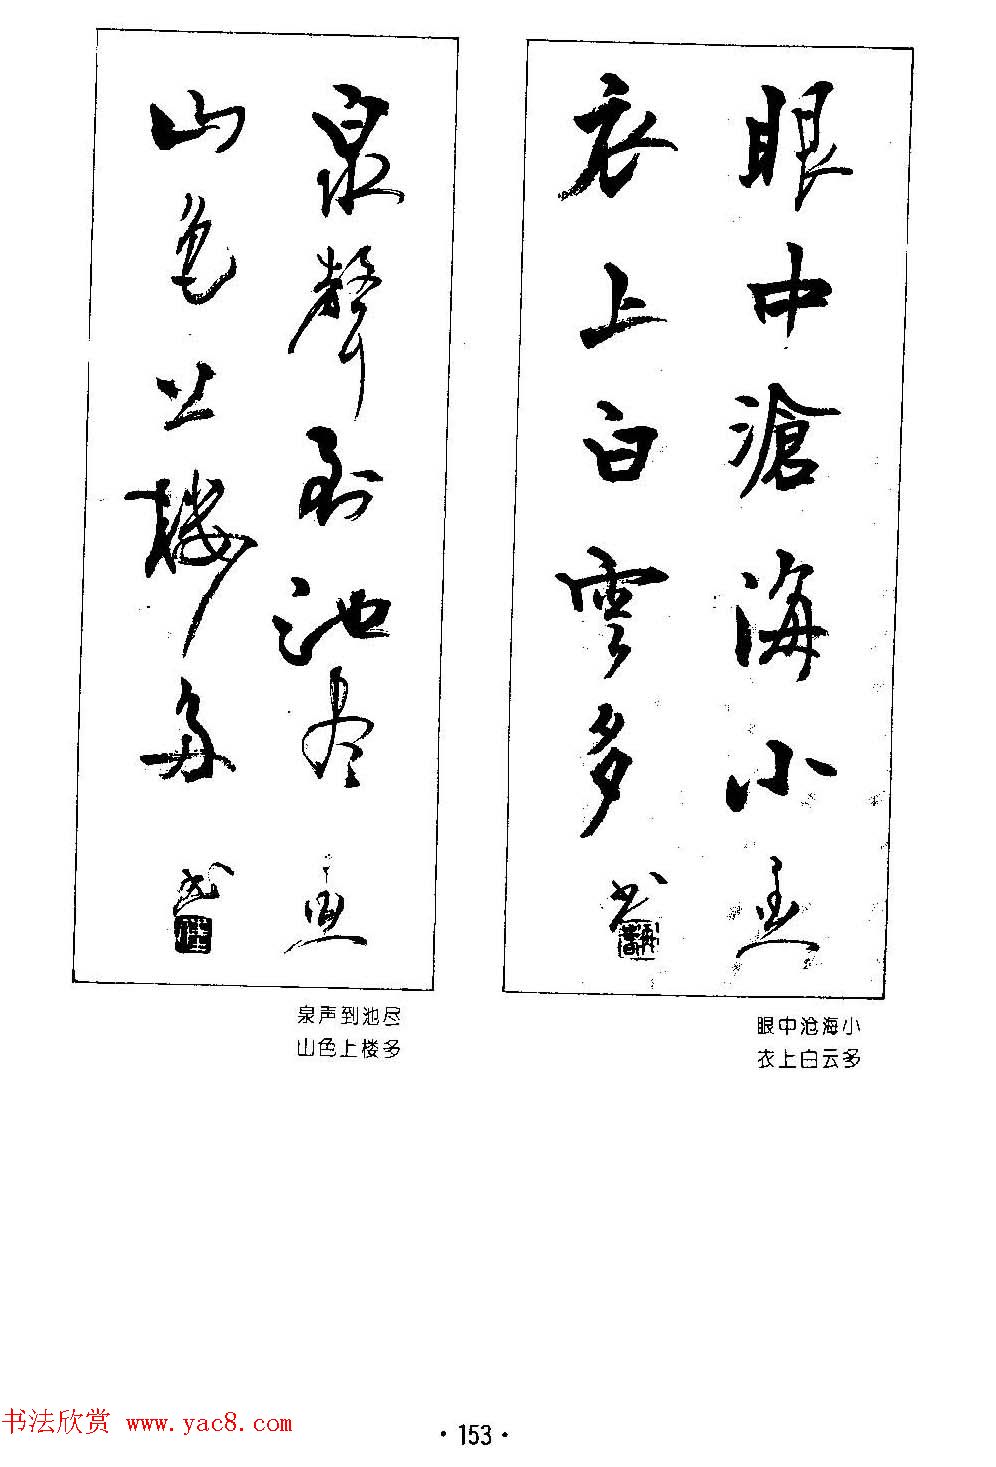 眼中滄海小
衣上白雲多
书
眼中沧海小
衣上白云多
泉聲到池尽
山色上楼多
书
泉声到池尽
山色上楼多
书法欣赏 www.yac8.com
·153·